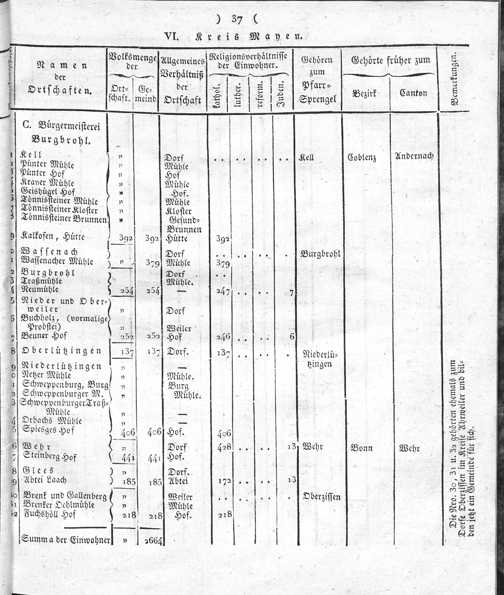 ) 37 (
VI. Kreis Mayen.
Namen der Ortschaften.
Volksmenge der
Ortschaft.
Gemeind
Allgemeines Verhältniß der Ortschaft
Religionsverhältnisse der Einwohner.
kathol.
luther.
reform.
Juden.
Gehören zum Pfarr-Sprengel
Gehörte früher zum
Bezirk
Canton
Bemerkungen.
C. Bürgermeisterei
Burgbrohl.
Kell " Dorf .. .. .. .. Kell Coblenz Andernach
Pünter Mühle " Mühle
Pünter Hof " Hof
Kraner Mühle " Mühle
Geishügel Hof " Hof.
Tönnissteiner Mühle " Mühle
Tönnissteiner Kloster " Kloster
Tönnissteiner Brunnen " Gesund-
Brunnen
Kalkofen, Hütte 392 392 Hütte 392
Wassenach " Dorf .. .. .. .. Burgbrohl
Wassenacher Mühle " 379 Mühle 379
Burgbrohl " Dorf
Traßmühle " Mühle.
Neumühle 254 254 — 247 .. .. 7
Nieder und Ober-
weiler " Dorf
Buchholz, (vormalige
Probstei) " Weiler
Beuner Hof 252 252 Hof 246 .. .. 6
Oberlützingen 137 137 Dorf. 137 .. .. .. Niederlü-
tzingen
Niederlützingen " —
Netzer Mühle " Mühle.
Schweppenburg, Burg " Burg
Schweppenburger M. " Mühle.
Schweppenburger Traß-
Mühle " —
Orbachs Mühle " —
Spiesges Hof 406 406 Hof. 406
Wehr " Dorf 428 .. .. 13 Wehr Bonn Wehr
Steinberg Hof 441 441 Hof.
Glees " Dorf.
Abtei Laach 185 185 Abtei 172 .. .. 13
Brenk und Gallenberg " Weiler .. .. .. .. Oberzissen
Brenker Oehlmühle " Mühle
Fuchshöll Hof 218 218 Hof. 218
Summa der Einwohner " 2664
Die Nro. 30, 31 u. 32 gehörten ehemals zum
Dorfe Oberzissen im Kreise Ahrweiler und bil-
den jetzt ein Gemeinde für sich.